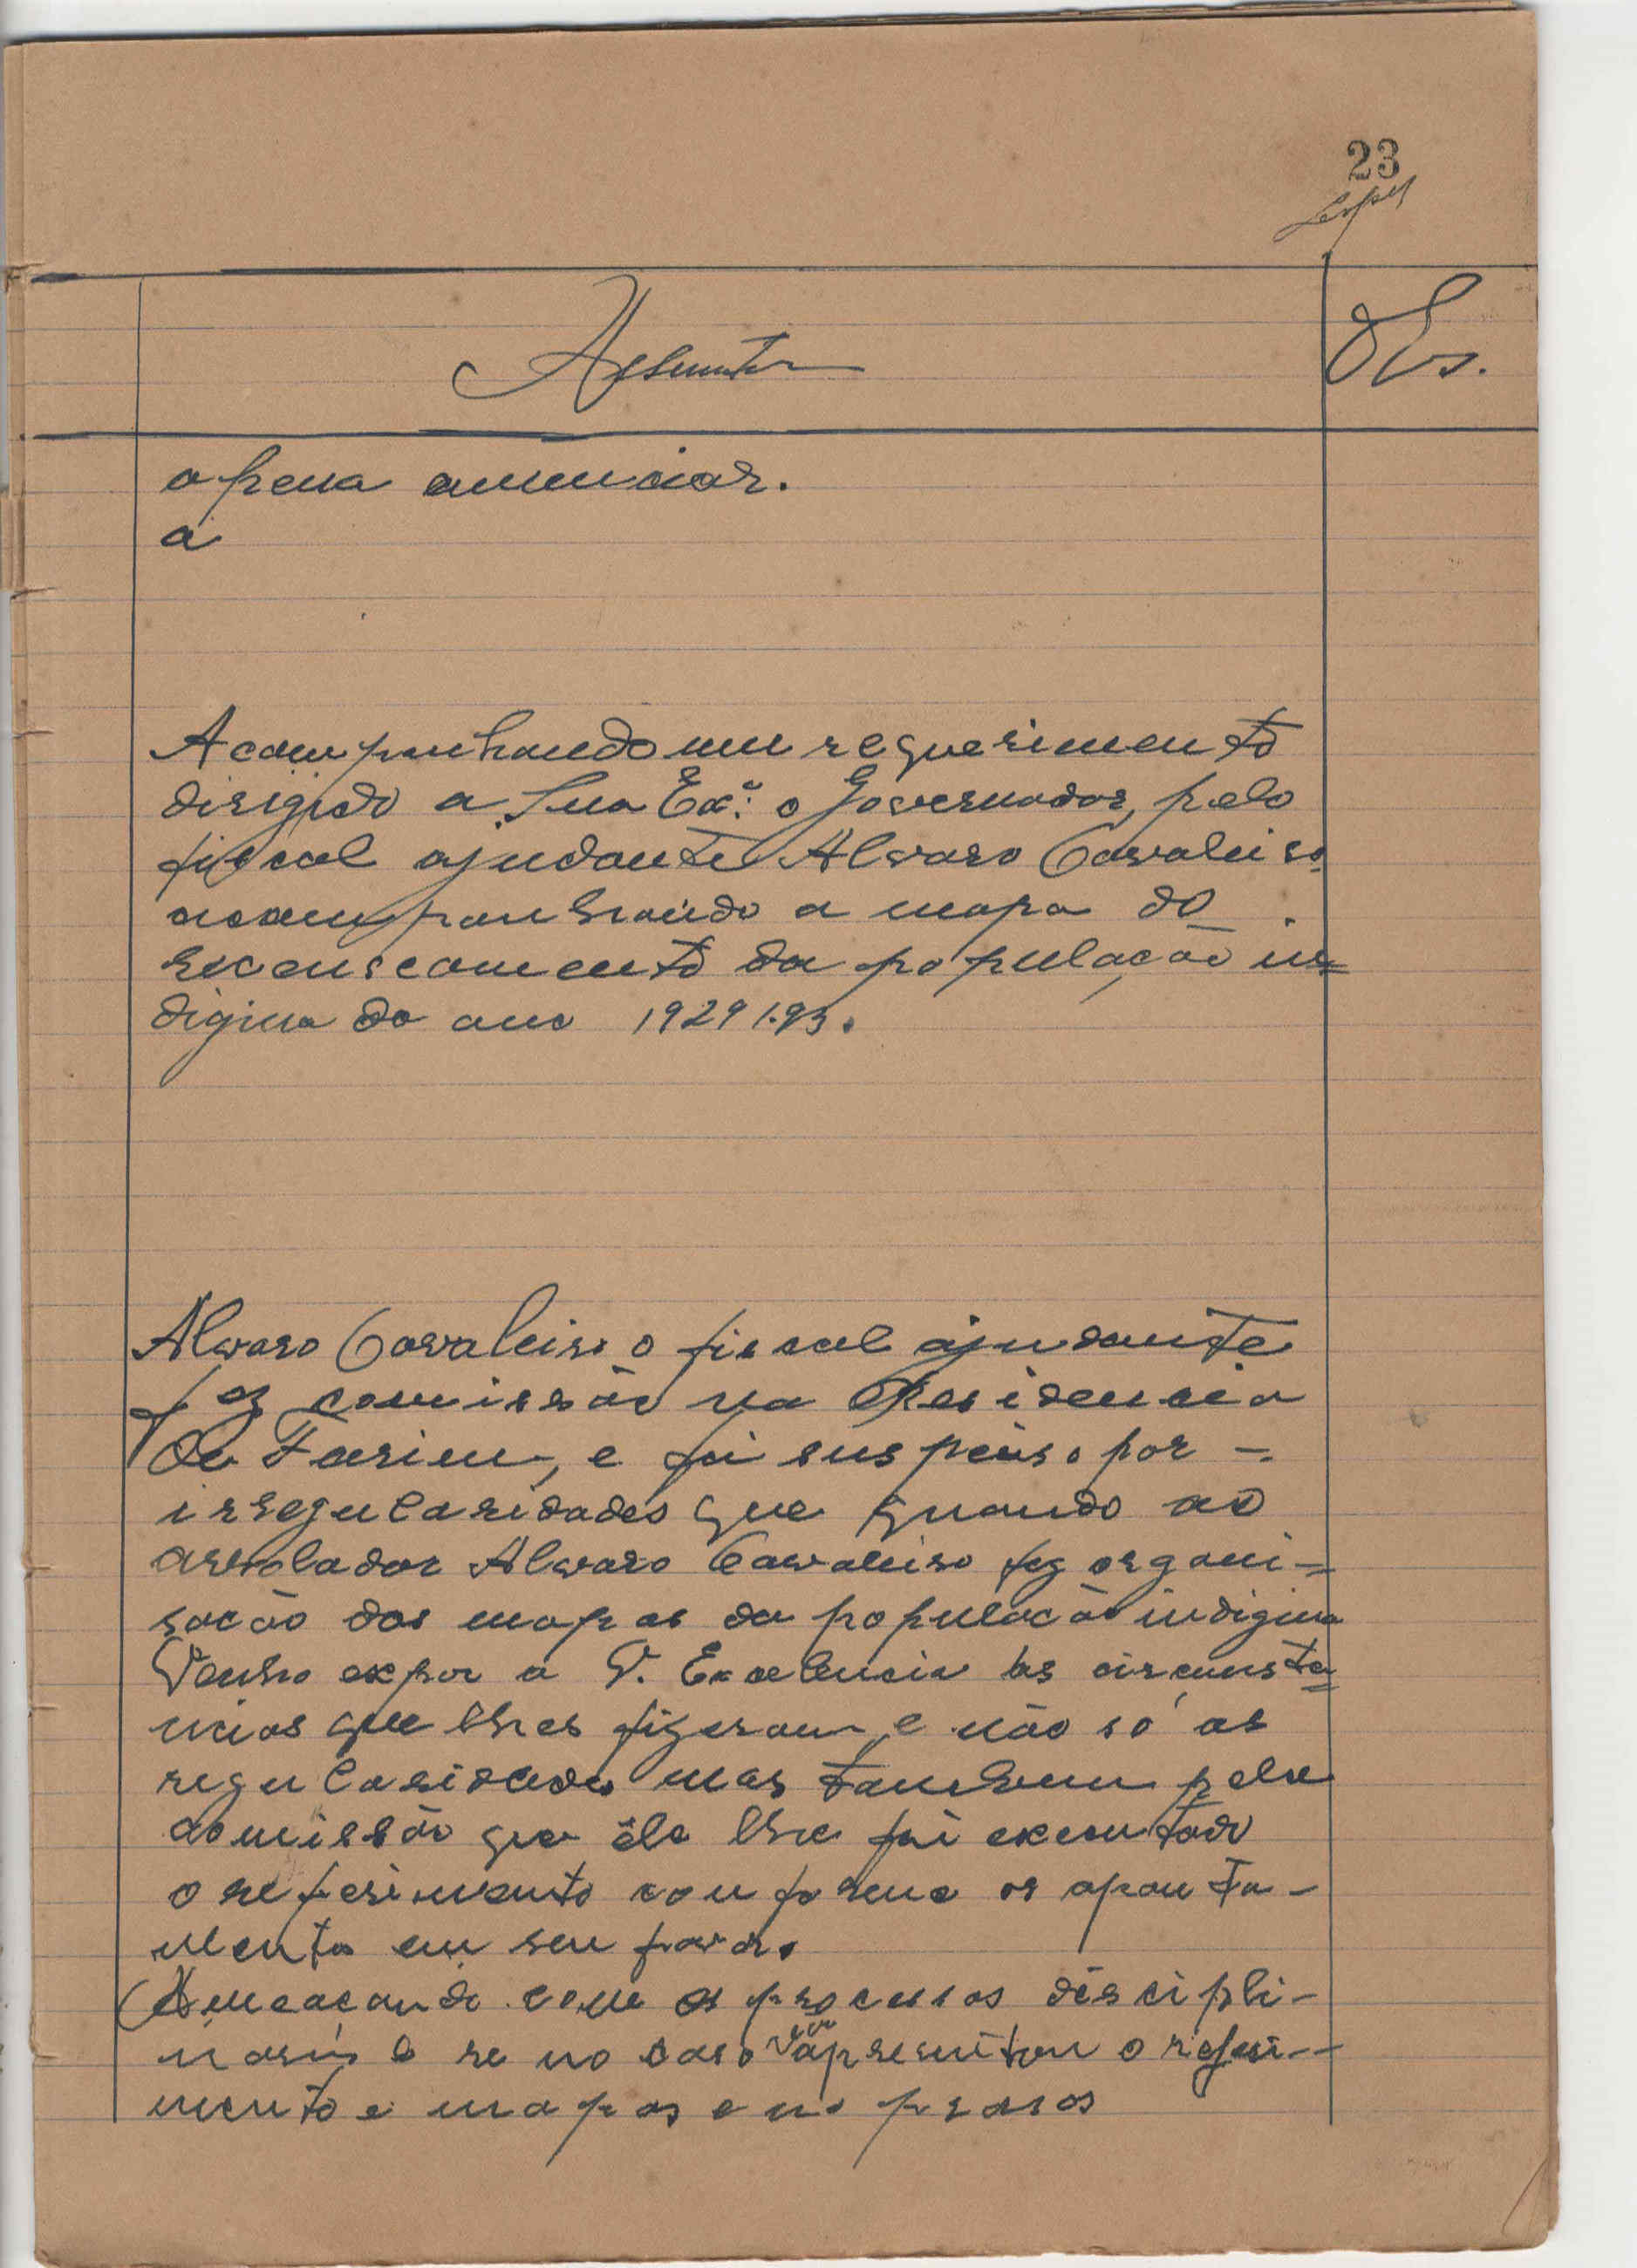 23
Assunto
Obs.
a pena anunciar.
a
Acompanhando um requerimento
dirigido a Sua Exª: o Governador, pelo
fiscal ajudante Alvaro Cavaleiro
acompanhando a mapa do
recenseamento da população in=
digina do ano 1929
Alvaro Cavaleiro o fiscal ajudante
fez comissão na Residencia
de Farim, e foi suspenso por -
irregularidades que quando ao
arrolador Alvaro Cavaleiro fez organi=
sacão dos mapas da populacão indigina
Venho expor a V. Excelencia as circunsta=
ncias que lhes fizeram, e não só as
regularidades mas tambem pela
domissão que êle lhe foi executado
o referimento conforme os aponta-
mentos em seu favor.
Ameaçando com os processos discipli-
naris e se no caso apresentou o
mento e mapas e no prasos